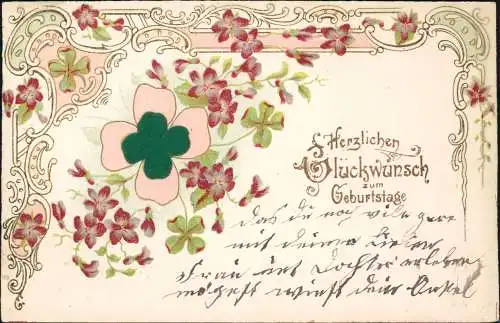 Herzlichen
Glückwunsch
zum
Geburtstage
das du noch viele
mit deiner lieben
Frau und Tochter erleben
mögest wünscht dein Onkel